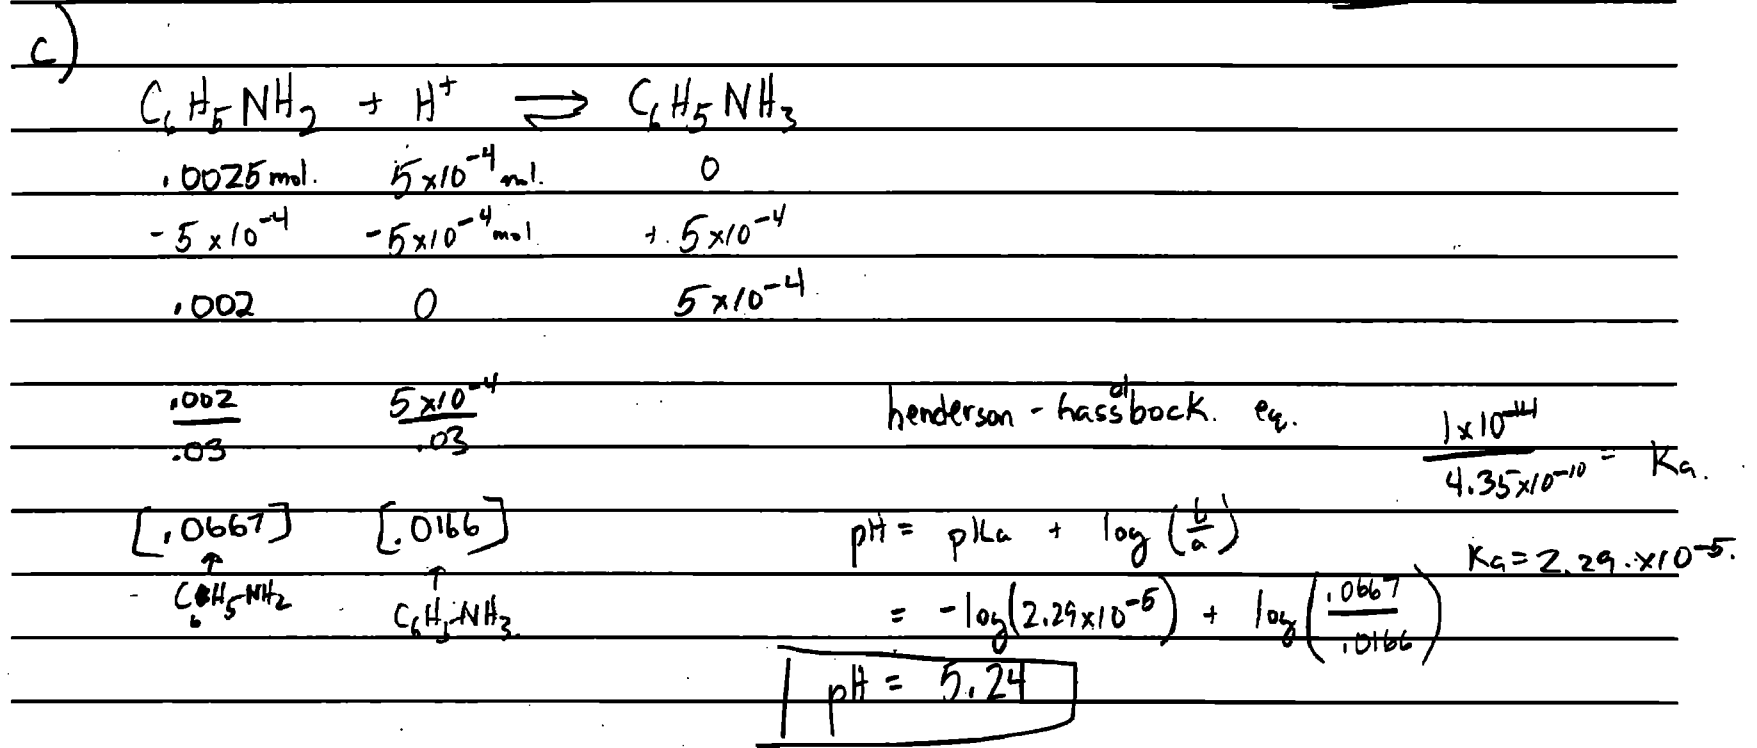 c)
C₆H₅NH₂ + H⁺ ⇌ C₆H₅NH₃
.0025 mol. 5×10⁻⁴ mol. 0
-5×10⁻⁴ -5×10⁻⁴ mol +.5×10⁻⁴
.002 0 5×10⁻⁴
.002/.03 5×10⁻⁴/.03 henderson-hasselbock. eq. 1×10⁻¹⁴/4.35×10⁻¹⁰ = Ka.
[.0667] [.0166] pH = pKa + log (b/a) Ka = 2.29.×10⁻⁵.
↑ ↑
C₆H₅NH₂ C₆H₅NH₃ = -log(2.29×10⁻⁵) + log(.0667/.0166)
pH = 5.24